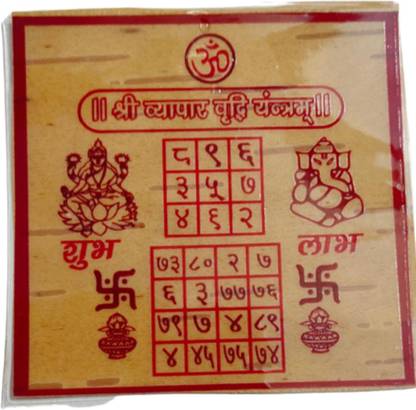 ॐ
|| श्री व्यापार वृद्धि यंन्त्रम् ||
८ ९ ६
३ ५ ७
४ ६ २
शुभ लाभ
७३ ८० २ ७
६ ३ ७७ ७६
७९ ७ ४ ८९
४ ४५ ७५ ७४